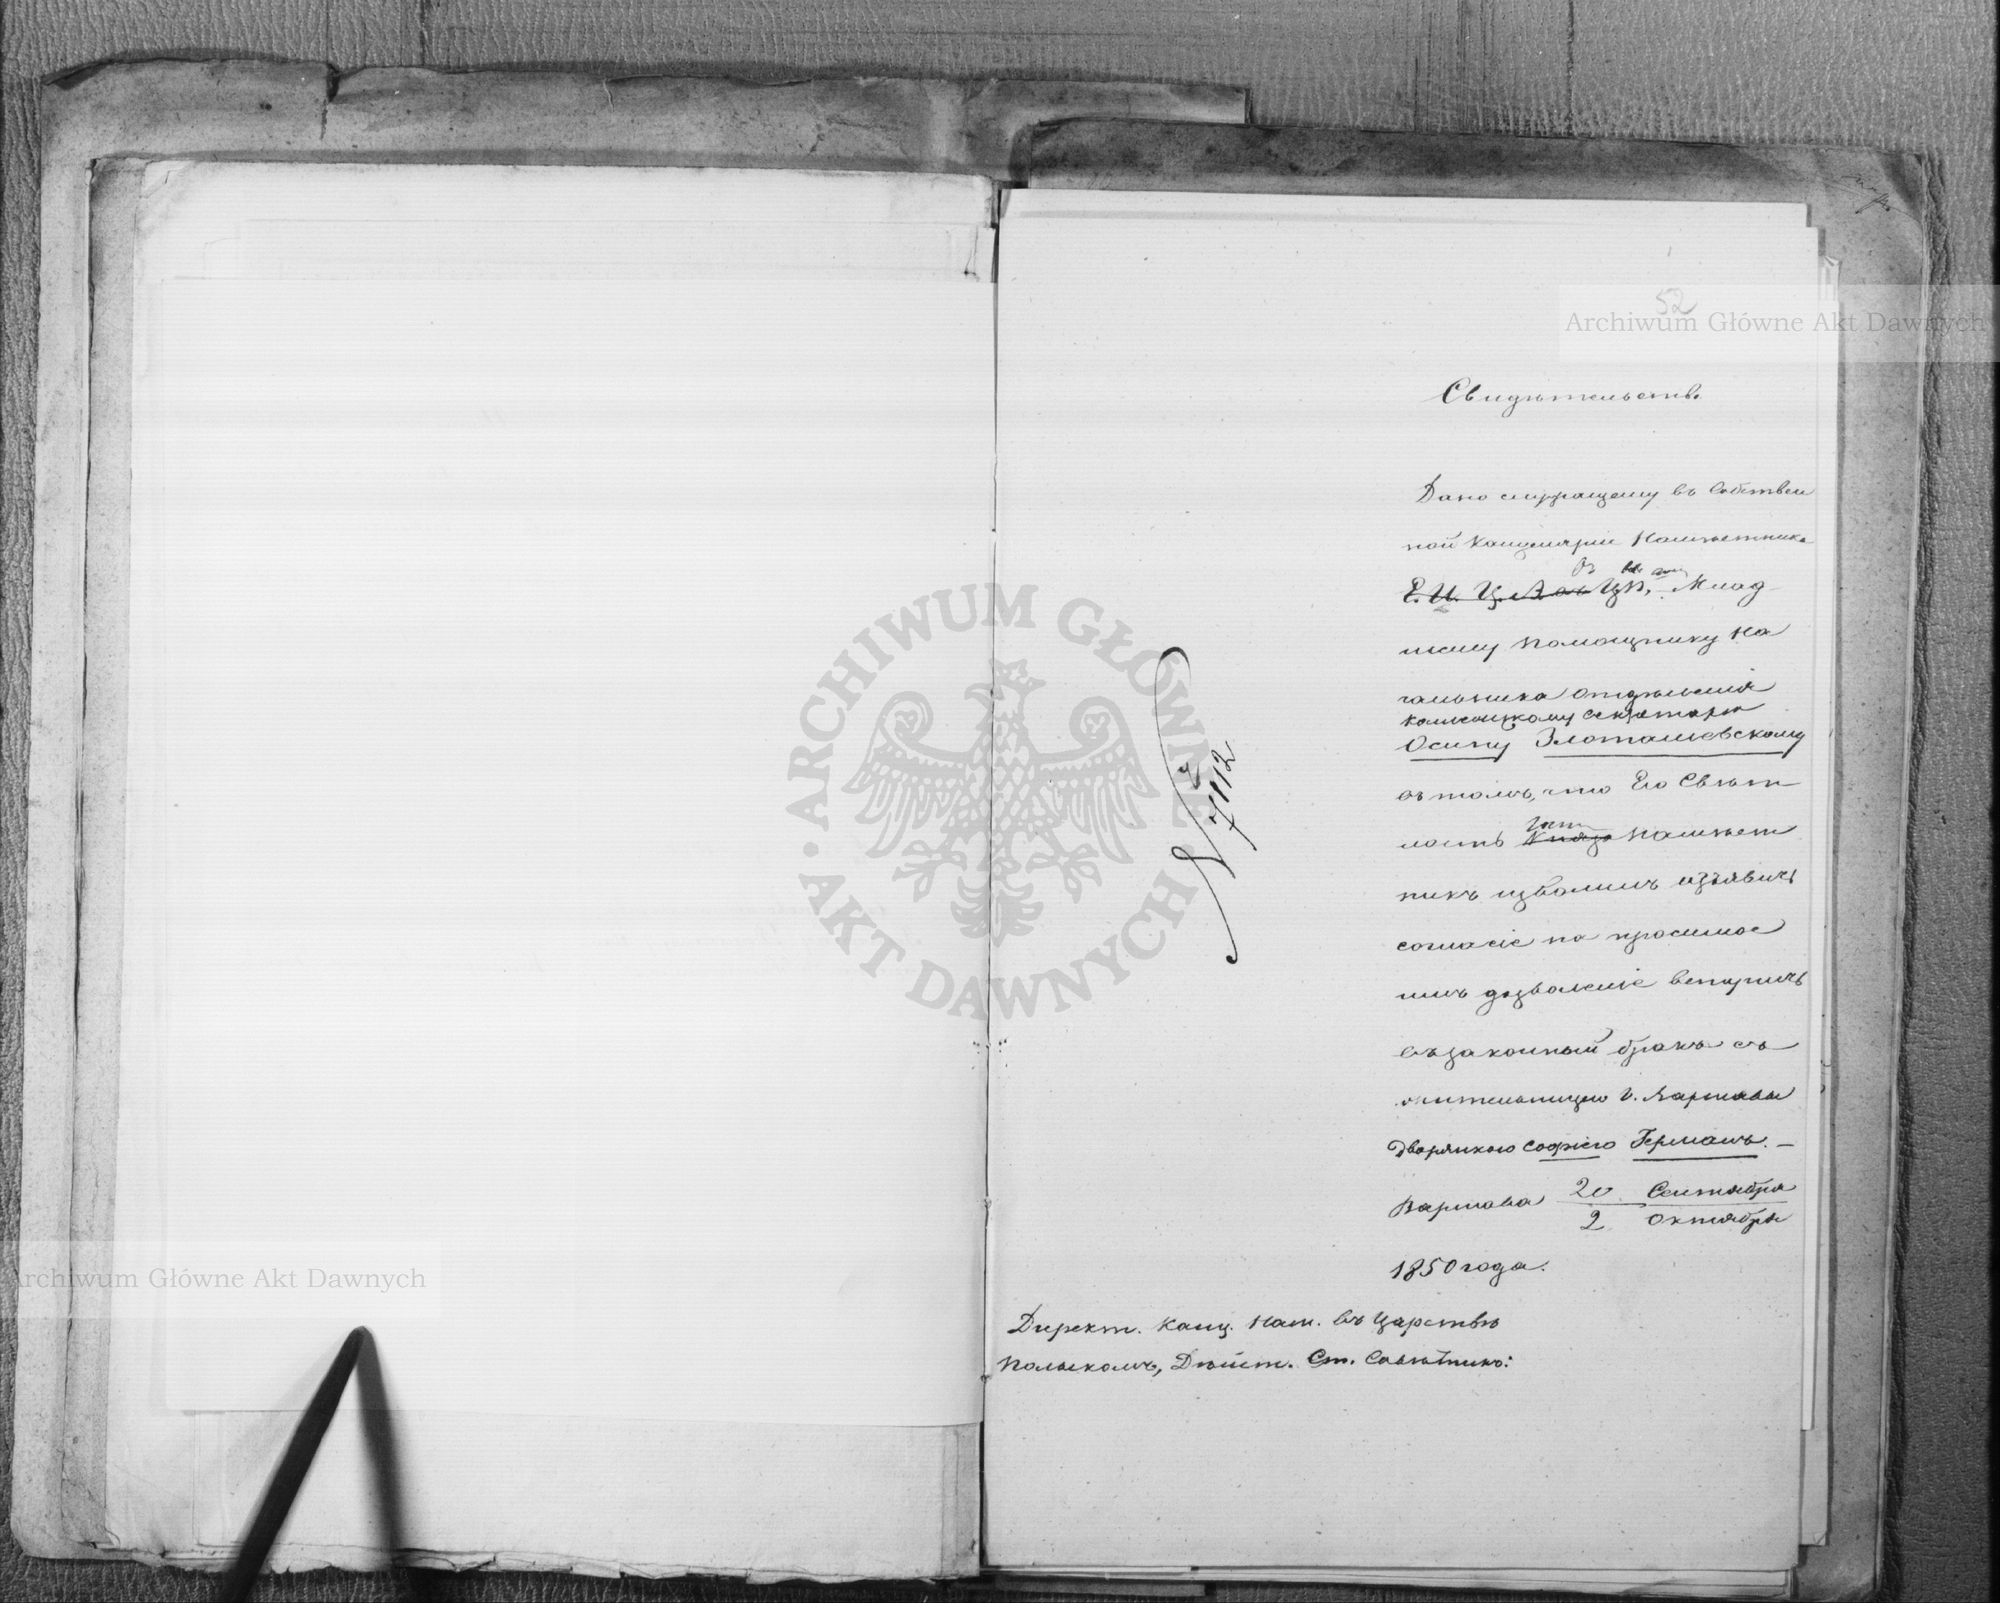 52
Archiwum Główne Akt Dawnych
Свидѣтельство.
Дано служащему въ Собствен
ной Канцеляріи Намѣстника
Е. И. Ц. В. въ ЦП, Млад
шему Помощнику На
чальника Отдѣленія
Коллежскому Секретарю
Осипу Злоташевскому
въ томъ, что Его Свѣт
лость Князь Намѣст
никъ изволилъ изъявить
согласіе на просимое
имъ дозволеніе вступить
въ законный бракъ съ
жительницею г. Варшавы
Дворянкою Софіею Германъ. —
Варшава 20 Сентября
2 Октября
1850 года.
Директ. Канц. Нам. въ Царствѣ
Польскомъ, Дѣйст. Ст. Совѣтникъ:
N 7112
ARCHIWUM GŁÓWNE · AKT DAWNYCH ·
Archiwum Główne Akt Dawnych